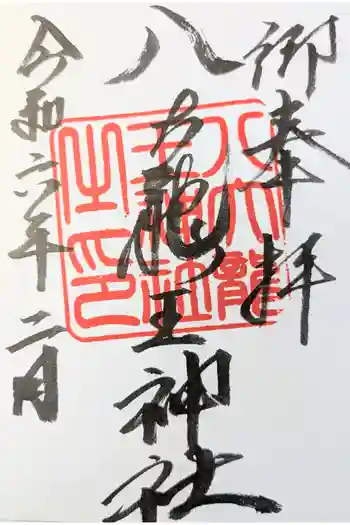 御奉拝
八大龍王神社
八大龍王神社之印
令和六年二月